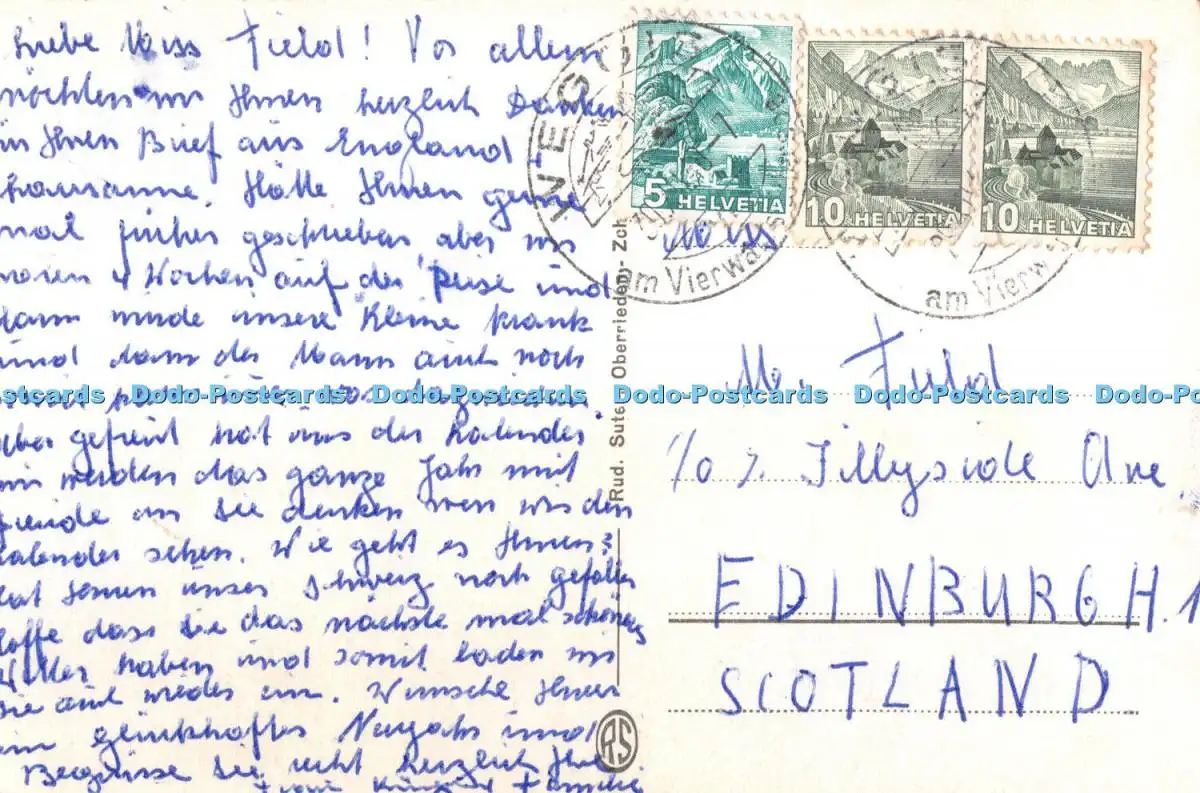 Liebe Miss Field! Vor allem
möchten wir Ihnen herzlich Danken
Ihren Brief aus England
Lausanne. Hätte Ihnen gerne
mal früher geschrieben aber wir
waren 4 Wochen auf der Reise und
dann wurde unsere Kleine krank
und dann der Mann auch noch
Aber gefreut hat uns der Kalender
wir werden das ganze Jahr mit
Freude an Sie denken wen wir den
Kalender sehen. Wie geht es Ihnen?
hat Ihnen unser Schweiz noch gefallen
hoffe dass Sie das nächste mal schönes
Wetter haben und somit laden wir
Sie auch wieder ein. Wünsche Ihnen
ein glückhaftes Neujahr und
Begrüsse Sie recht herzlich Ihre
Frau
Familie
5 HELVETIA
10 HELVETIA
10 HELVETIA
WEGGIS
am Vierwa
am Vierw
Rud. Suter Oberrieden-Zch
Miss
M. Field
c/o 7. Tillyside Ave
EDINBURGH. 1
SCOTLAND
RS
Dodo-Postcards Dodo-Postcards Dodo-Postcards Dodo-Postcards Dodo-Postcards